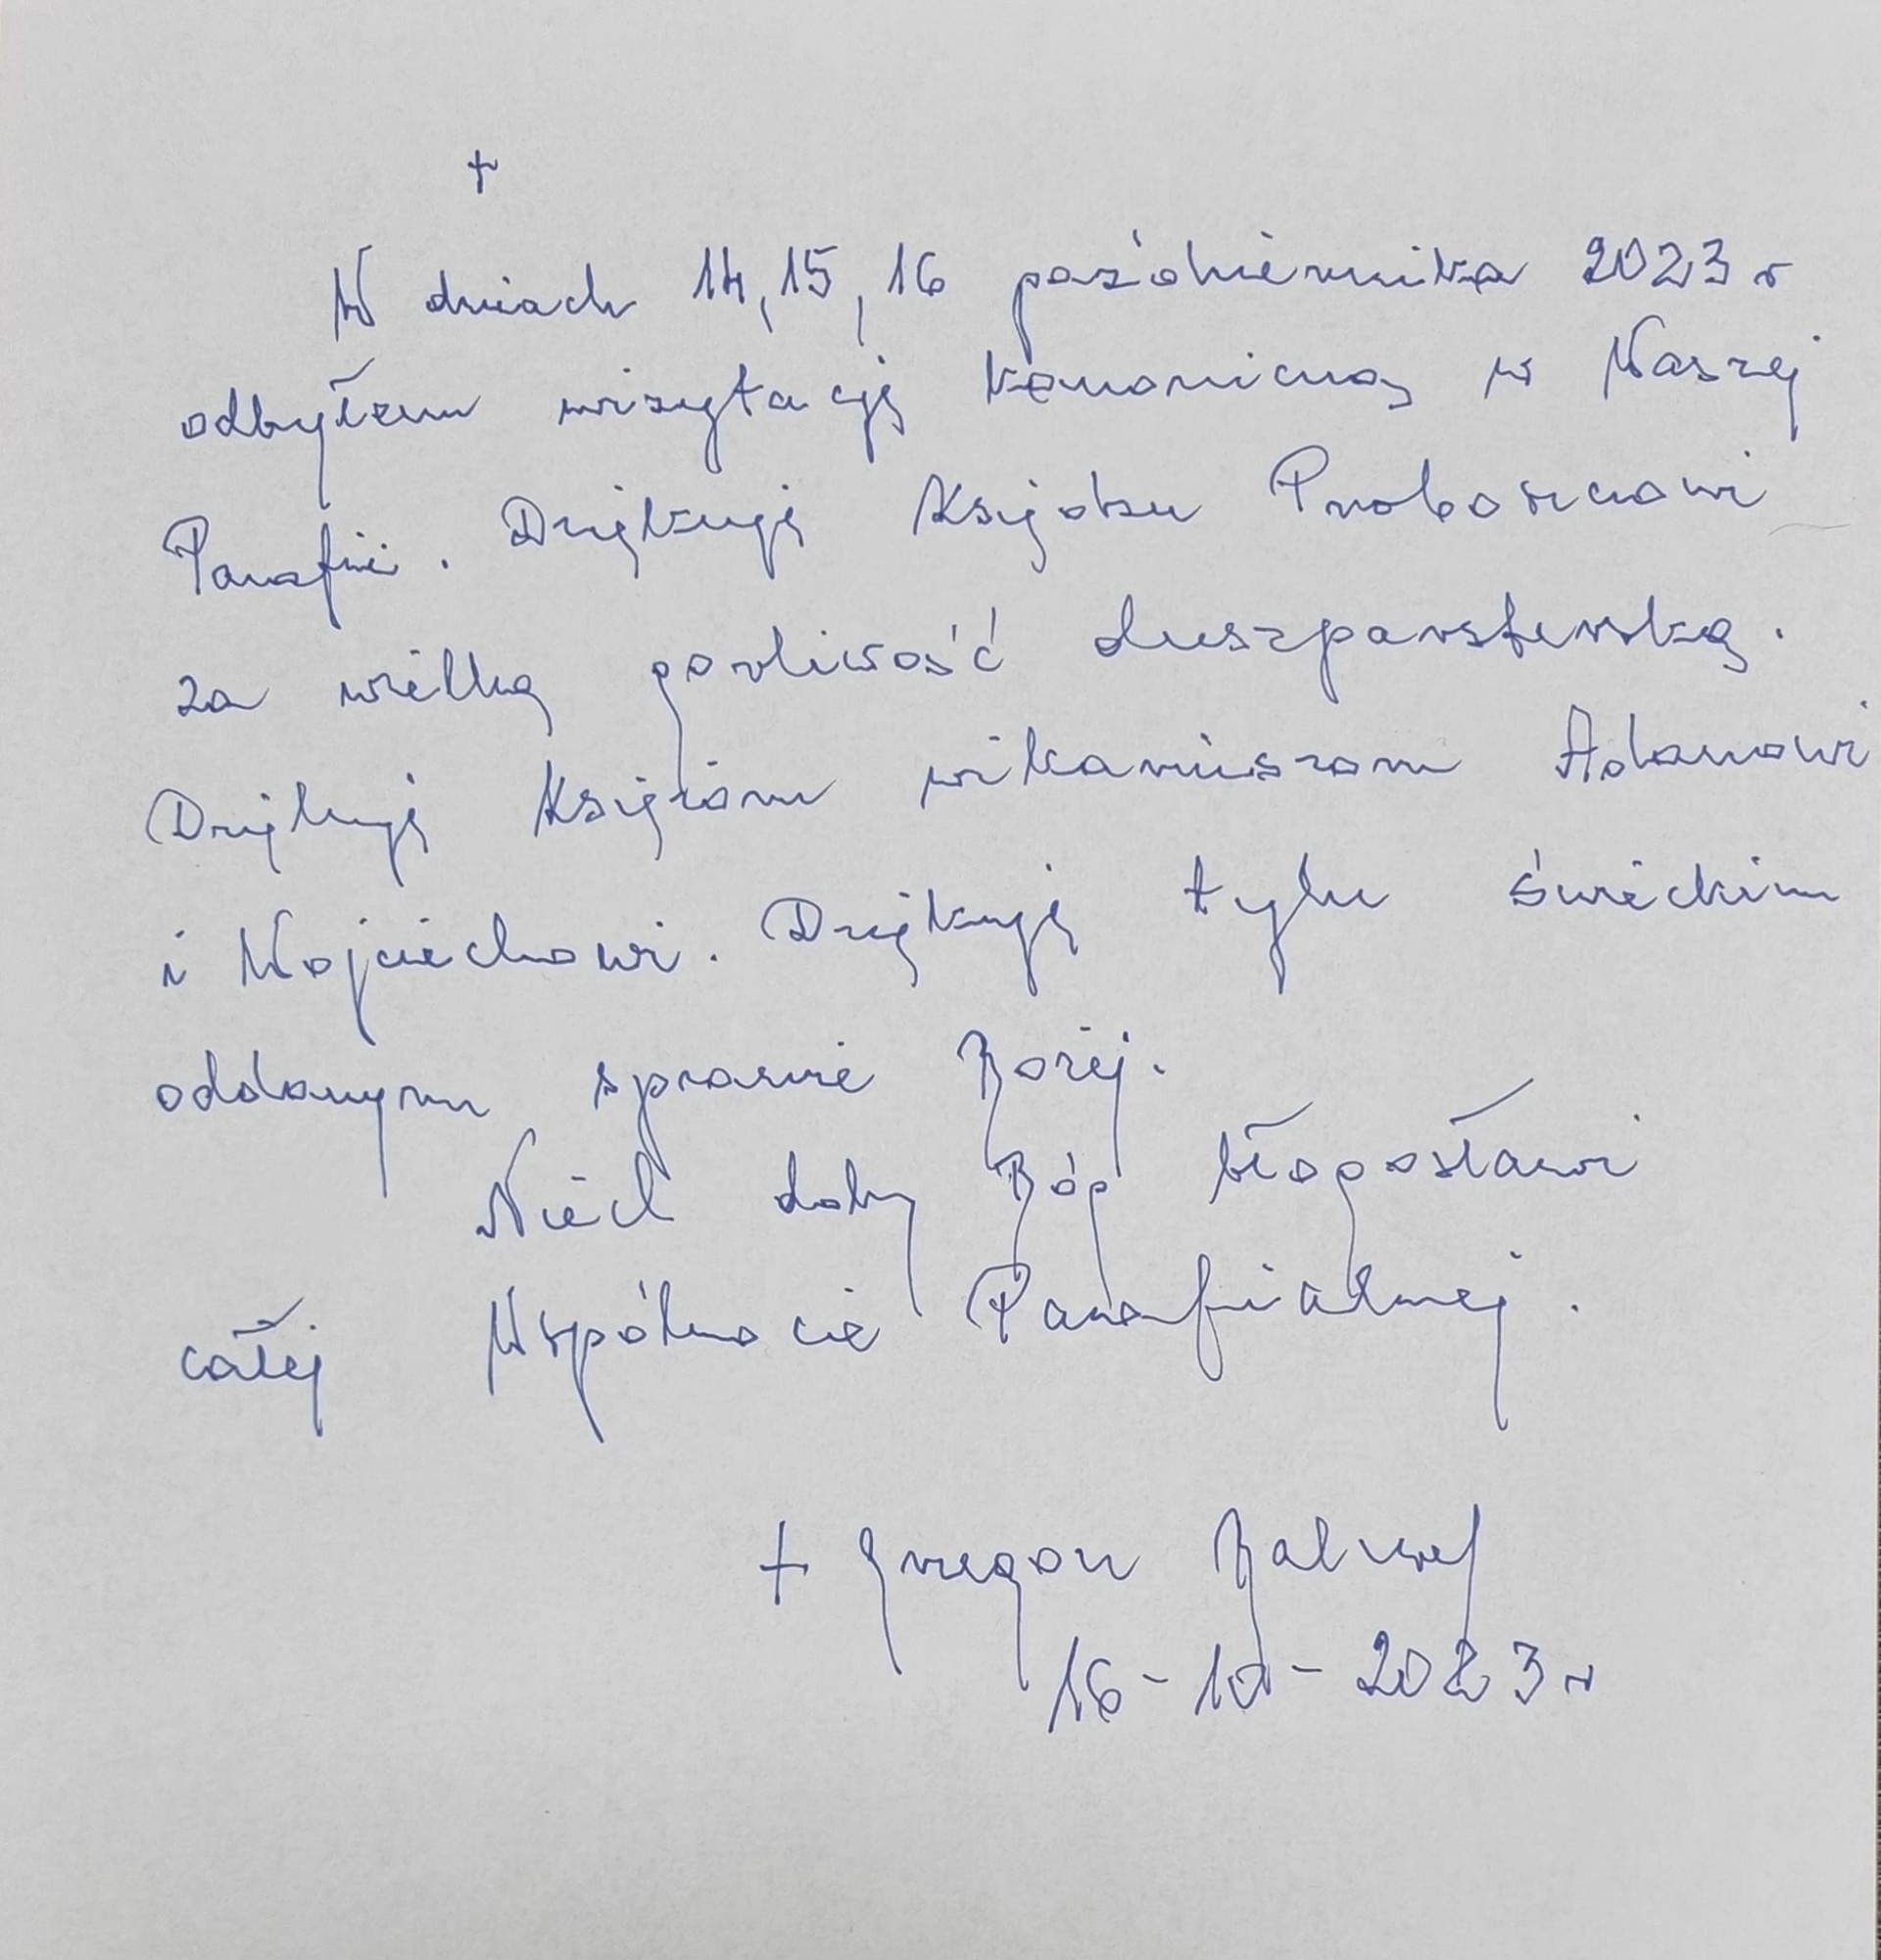 +
W dniach 14, 15, 16 października 2023 r
odbyłem wizytację kanoniczną w Waszej
Parafii. Dziękuję Księdzu Proboszczowi
za wielką gorliwość duszpasterską.
Dziękuję Księżom wikariuszom Adamowi
i Wojciechowi. Dziękuję tylu świeckim
oddanym sprawie Bożej.
Niech dobry Bóg błogosławi
całej Wspólnocie Parafialnej.
+ Grzegorz Balcerek
16-10-2023 r